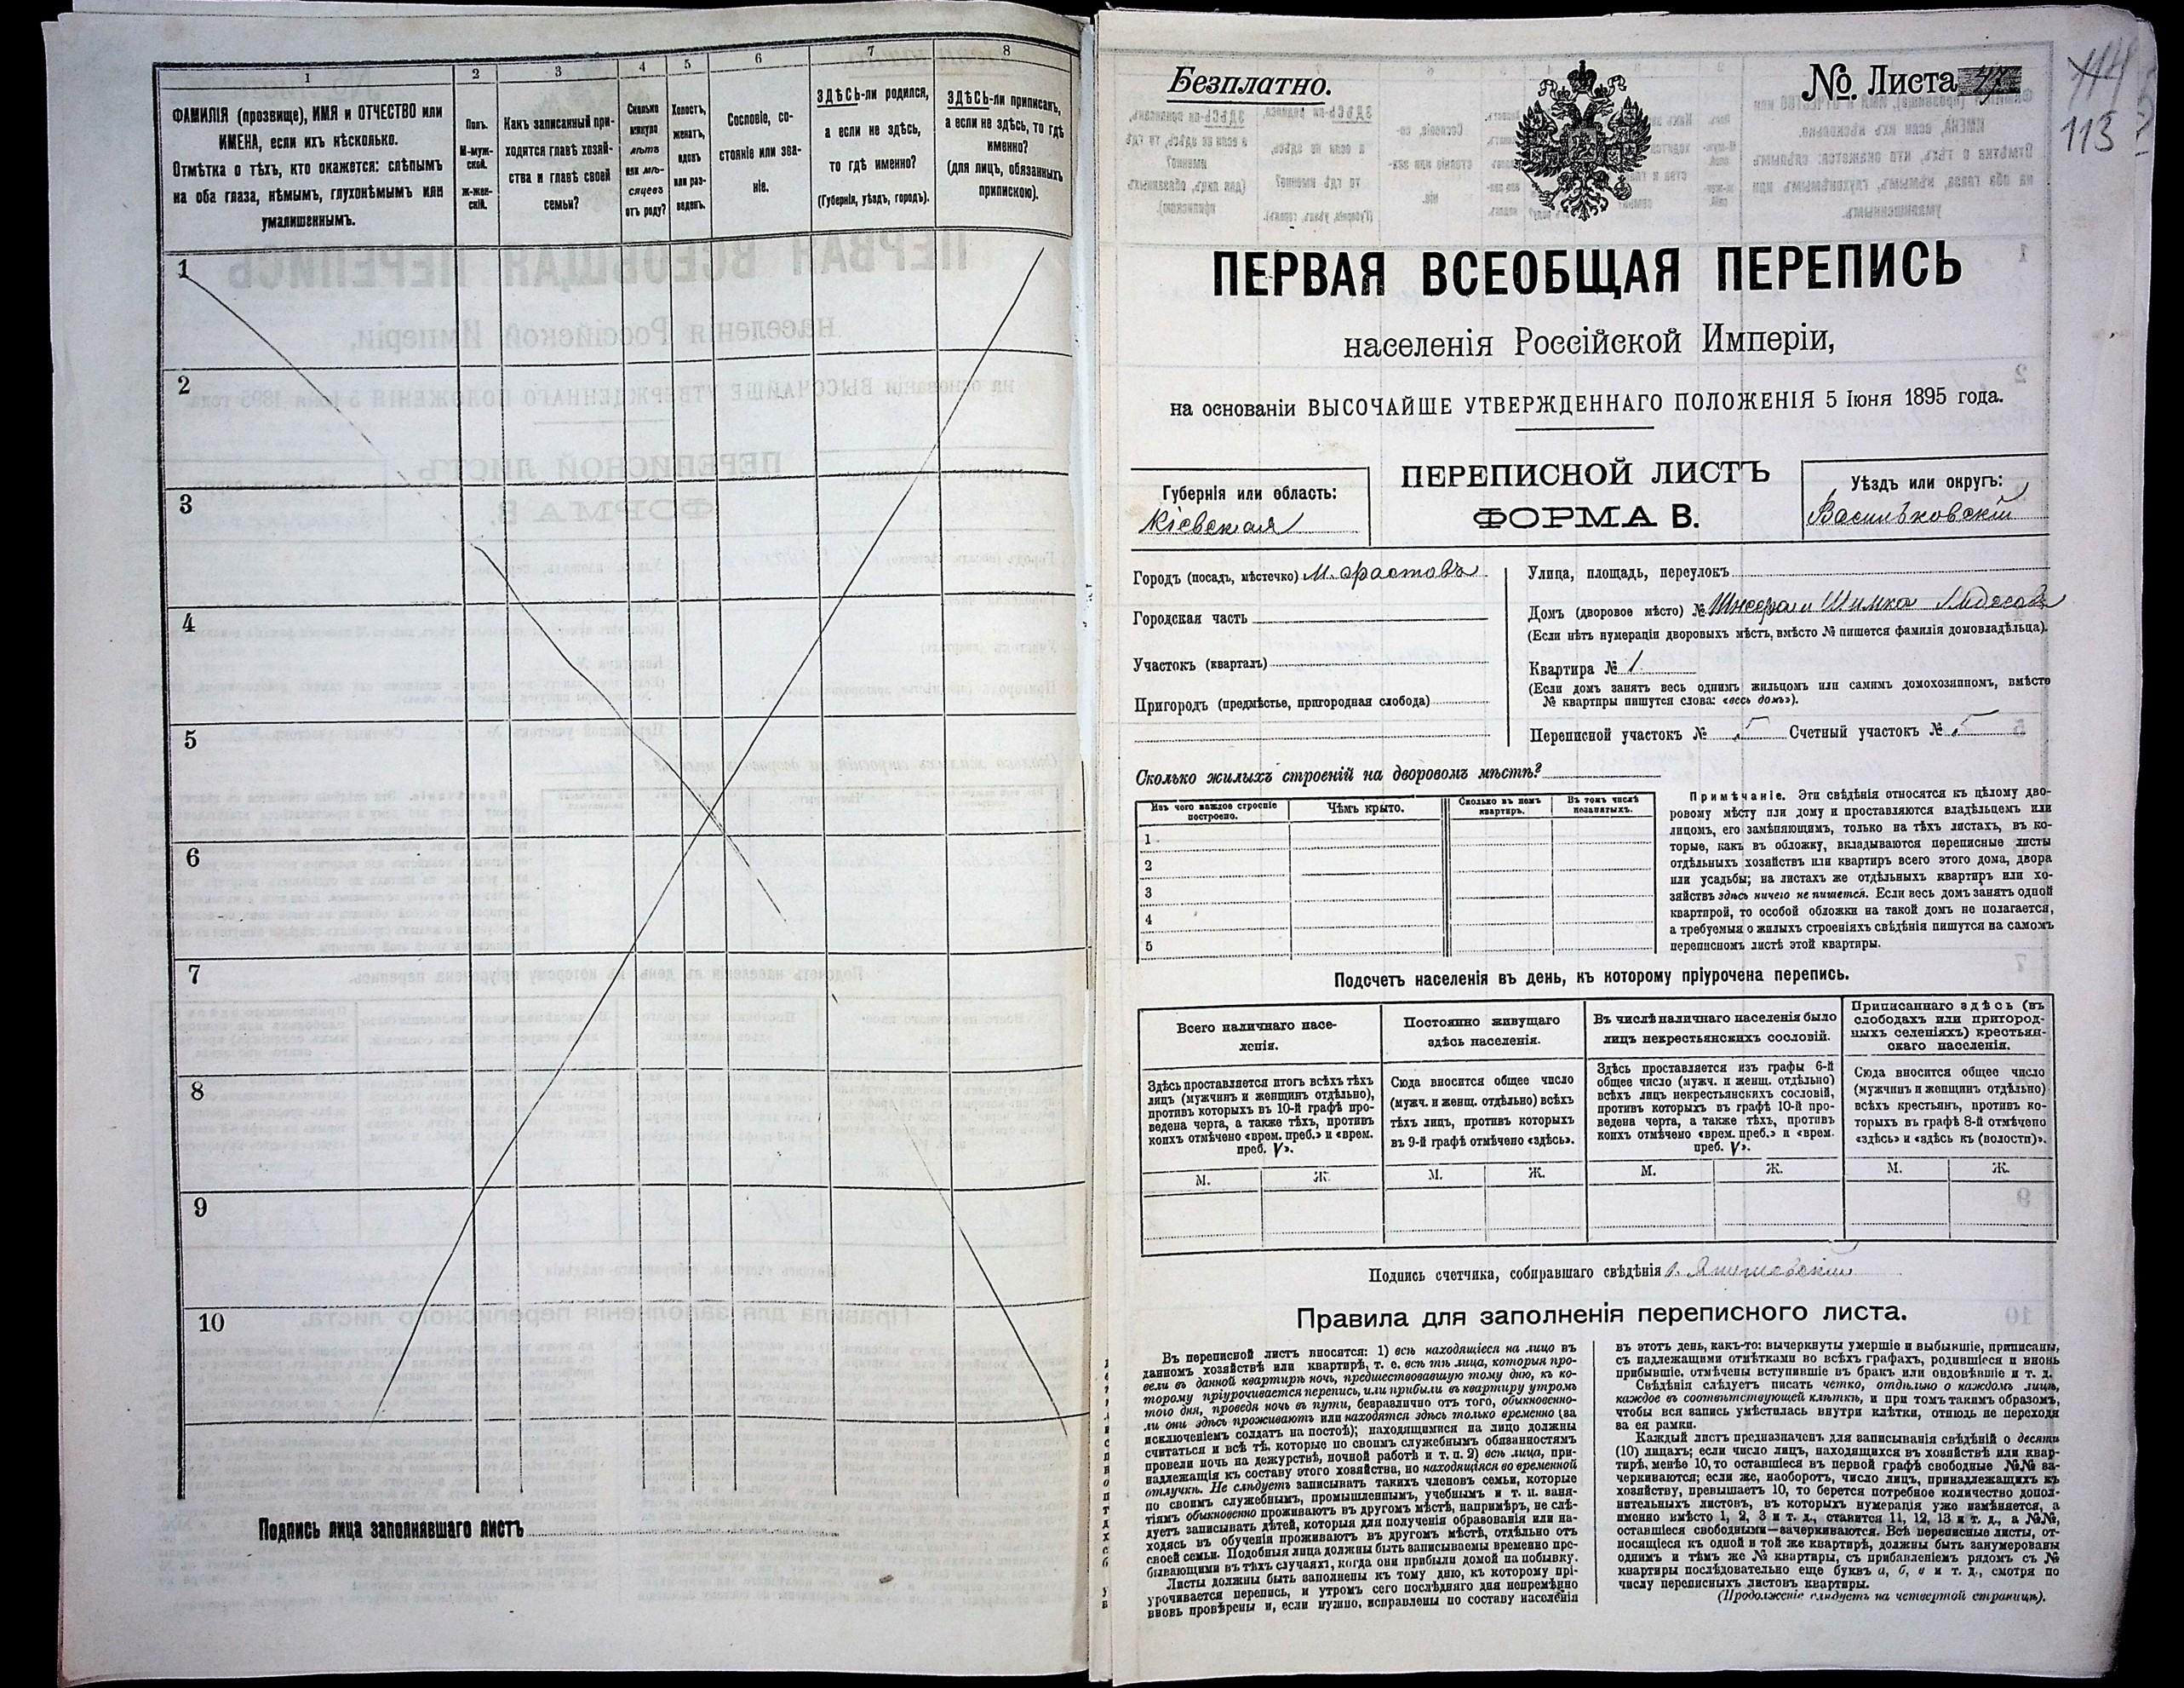 1
2
3
4
5
6
7
8
ФАМИЛІЯ (прозвище), ИМЯ и ОТЧЕСТВО или
ИМЕНА, если ихъ нѣсколько.
Отмѣтка о тѣхъ, кто окажется: слѣпымъ
на оба глаза, нѣмымъ, глухонѣмымъ или
умалишеннымъ.
Полъ.
М-муж-
ской.
Ж-жен-
скій.
Какъ записанный при-
ходится главѣ хозяй-
ства и главѣ своей
семьи?
Сколько
минуло
лѣтъ
или мѣ-
сяцевъ
отъ роду?
Холостъ,
женатъ,
вдовъ
или раз-
веденъ.
Сословіе, со-
стояніе или зва-
ніе.
ЗДѢСЬ-ли родился,
а если не здѣсь,
то гдѣ именно?
(Губернія, уѣздъ, городъ).
ЗДѢСЬ-ли приписанъ,
а если не здѣсь, то гдѣ
именно?
(для лицъ, обязанныхъ
припискою).
1
2
3
4
5
6
7
8
9
10
Подпись лица заполнявшаго листъ
Безплатно.
№ Листа
114
113
ПЕРВАЯ ВСЕОБЩАЯ ПЕРЕПИСЬ
населенія Россійской Имперіи,
на основаніи ВЫСОЧАЙШЕ УТВЕРЖДЕННАГО ПОЛОЖЕНІЯ 5 Іюня 1895 года.
Губернія или область:
Кіевская
ПЕРЕПИСНОЙ ЛИСТЪ
ФОРМА В.
Уѣздъ или округъ:
Васильковскій
Городъ (посадъ, мѣстечко) М. Фастовъ
Городская часть
Участокъ (кварталъ)
Пригородъ (предмѣстье, пригородная слобода)
Улица, площадь, переулокъ
Домъ (дворовое мѣсто) № Шимка
(Если нѣтъ нумераціи дворовыхъ мѣстъ, вмѣсто № пишется фамилія домовладѣльца).
Квартира № 1
(Если домъ занятъ весь однимъ жильцомъ или самимъ домохозяиномъ, вмѣсто
№ квартиры пишутся слова: «весь домъ»).
Переписной участокъ № 5 Счетный участокъ № 5
Сколько жилыхъ строеній на дворовомъ мѣстѣ?
Изъ чего каждое строеніе
построено.
Чѣмъ крыто.
Сколько въ немъ
квартиръ.
Въ томъ числѣ
незанятыхъ.
1
2
3
4
5
Примѣчаніе. Эти свѣдѣнія относятся къ цѣлому дво-
ровому мѣсту или дому и проставляются владѣльцемъ или
лицомъ, его замѣняющимъ, только на тѣхъ листахъ, въ ко-
торые, какъ въ обложку, вкладываются переписные листы
отдѣльныхъ хозяйствъ или квартиръ всего этого дома, двора
или усадьбы; на листахъ же отдѣльныхъ квартиръ или хо-
зяйствъ здѣсь ничего не пишется. Если весь домъ занятъ одной
квартирой, то особой обложки на такой домъ не полагается,
а требуемыя о жилыхъ строеніяхъ свѣдѣнія пишутся на самомъ
переписномъ листѣ этой квартиры.
Подсчетъ населенія въ день, къ которому пріурочена перепись.
Всего наличнаго насе-
ленія.
Здѣсь проставляется итогъ всѣхъ тѣхъ
лицъ (мужчинъ и женщинъ отдѣльно),
противъ которыхъ въ 10-й графѣ про-
ведена черта, а также тѣхъ, противъ
коихъ отмѣчено «врем. преб.» и «врем.
преб. V».
Постоянно живущаго
здѣсь населенія.
Сюда вносится общее число
(мужч. и женщ. отдѣльно) всѣхъ
тѣхъ лицъ, противъ которыхъ
въ 9-й графѣ отмѣчено «здѣсь».
Въ числѣ наличнаго населенія было
лицъ некрестьянскихъ сословій.
Здѣсь проставляется изъ графы 6-й
общее число (мужч. и женщ. отдѣльно)
всѣхъ лицъ некрестьянскихъ сословій,
противъ которыхъ въ графѣ 10-й про-
ведена черта, а также тѣхъ, противъ
коихъ отмѣчено «врем. преб.» и «врем.
преб. V».
Приписаннаго здѣсь (въ
слободахъ или пригород-
ныхъ селеніяхъ) крестьян-
скаго населенія.
Сюда вносится общее число
(мужчинъ и женщинъ отдѣльно)
всѣхъ крестьянъ, противъ ко-
торыхъ въ графѣ 8-й отмѣчено
«здѣсь» и «здѣсь къ (волости)».
М.
Ж.
М.
Ж.
М.
Ж.
М.
Ж.
Подпись счетчика, собиравшаго свѣдѣнія
Правила для заполненія переписного листа.
Въ переписной листъ вносятся: 1) всѣ находящіеся на лицо въ
данномъ хозяйствѣ или квартирѣ, т. е. всѣ тѣ лица, которыя про-
вели въ данной квартирѣ ночь, предшествовавшую тому дню, къ ко-
торому пріурочивается перепись, или прибыли въ квартиру утромъ
того дня, проведя ночь въ пути, безразлично отъ того, обыкновенно-
ли они здѣсь проживаютъ или находятся здѣсь только временно (за
исключеніемъ солдатъ на постоѣ); находящимися на лицо должны
считаться и всѣ тѣ, которые по своимъ служебнымъ обязанностямъ
провели ночь на дежурствѣ, ночной работѣ и т. п. 2) всѣ лица, при-
надлежащія къ составу этого хозяйства, но находящіяся во временной
отлучкѣ. Не слѣдуетъ записывать такихъ членовъ семьи, которые
по своимъ служебнымъ, промышленнымъ, учебнымъ и т. п. заня-
тіямъ обыкновенно проживаютъ въ другомъ мѣстѣ, напримѣръ, не слѣ-
дуетъ записывать дѣтей, которыя для полученія образованія или на-
ходясь въ обученіи проживаютъ въ другомъ мѣстѣ, отдѣльно отъ
своей семьи. Подобныя лица должны быть записываемы временно пре-
бывающими въ тѣхъ случаяхъ, когда они прибыли домой на побывку.
Листы должны быть заполнены къ тому дню, къ которому прі-
урочивается перепись, и утромъ сего послѣдняго дня непремѣнно
вновь провѣрены и, если нужно, исправлены по составу населенія
въ этотъ день, какъ-то: вычеркнуты умершіе и выбывшіе, приписаны,
съ надлежащими отмѣтками во всѣхъ графахъ, родившіеся и вновь
прибывшіе, отмѣчены вступившіе въ бракъ или овдовѣвшіе и т. д.
Свѣдѣнія слѣдуетъ писать четко, отдѣльно о каждомъ лицѣ,
каждое въ соотвѣтствующей клѣткѣ, и при томъ такимъ образомъ,
чтобы вся запись умѣстилась внутри клѣтки, отнюдь не переходя
за ея рамки.
Каждый листъ предназначенъ для записыванія свѣдѣній о десяти
(10) лицахъ; если число лицъ, находящихся въ хозяйствѣ или квар-
тирѣ, менѣе 10, то оставшіеся въ первой графѣ свободные №№ за-
черкиваются; если же, наоборотъ, число лицъ, принадлежащихъ къ
хозяйству, превышаетъ 10, то берется потребное количество допол-
нительныхъ листовъ, въ которыхъ нумерація уже измѣняется, а
именно вмѣсто 1, 2, 3 и т. д., ставится 11, 12, 13 и т. д., а №№,
оставшіеся свободными—зачеркиваются. Всѣ переписные листы, от-
носящіеся къ одной и той же квартирѣ, должны быть занумерованы
однимъ и тѣмъ же № квартиры, съ прибавленіемъ рядомъ съ №
квартиры послѣдовательно еще буквъ а, б, в и т. д., смотря по
числу переписныхъ листовъ квартиры.
(Продолженіе слѣдуетъ на четвертой страницѣ).